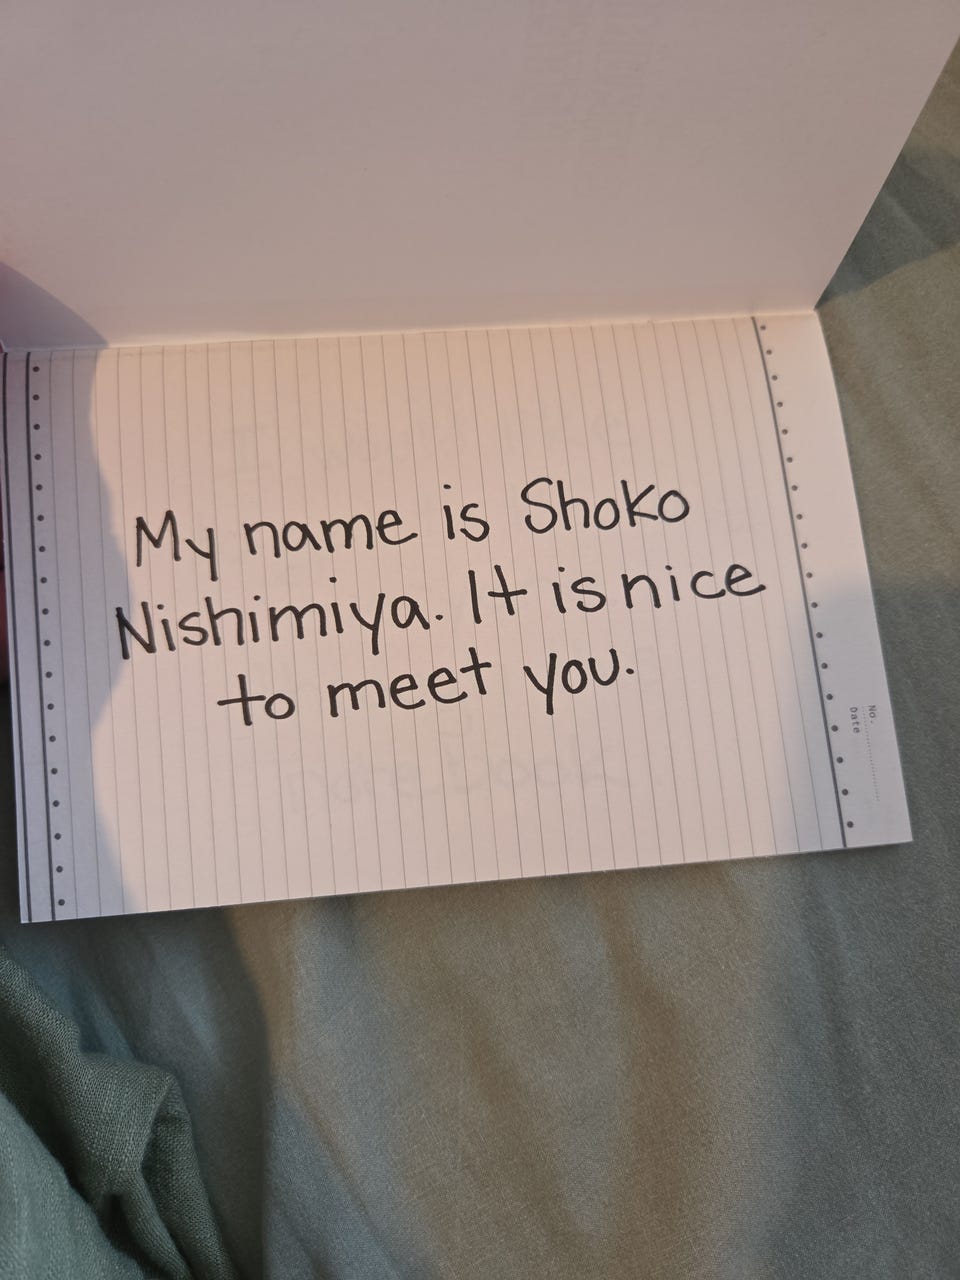 My name is Shoko
Nishimiya. It is nice
to meet you.
No.
Date